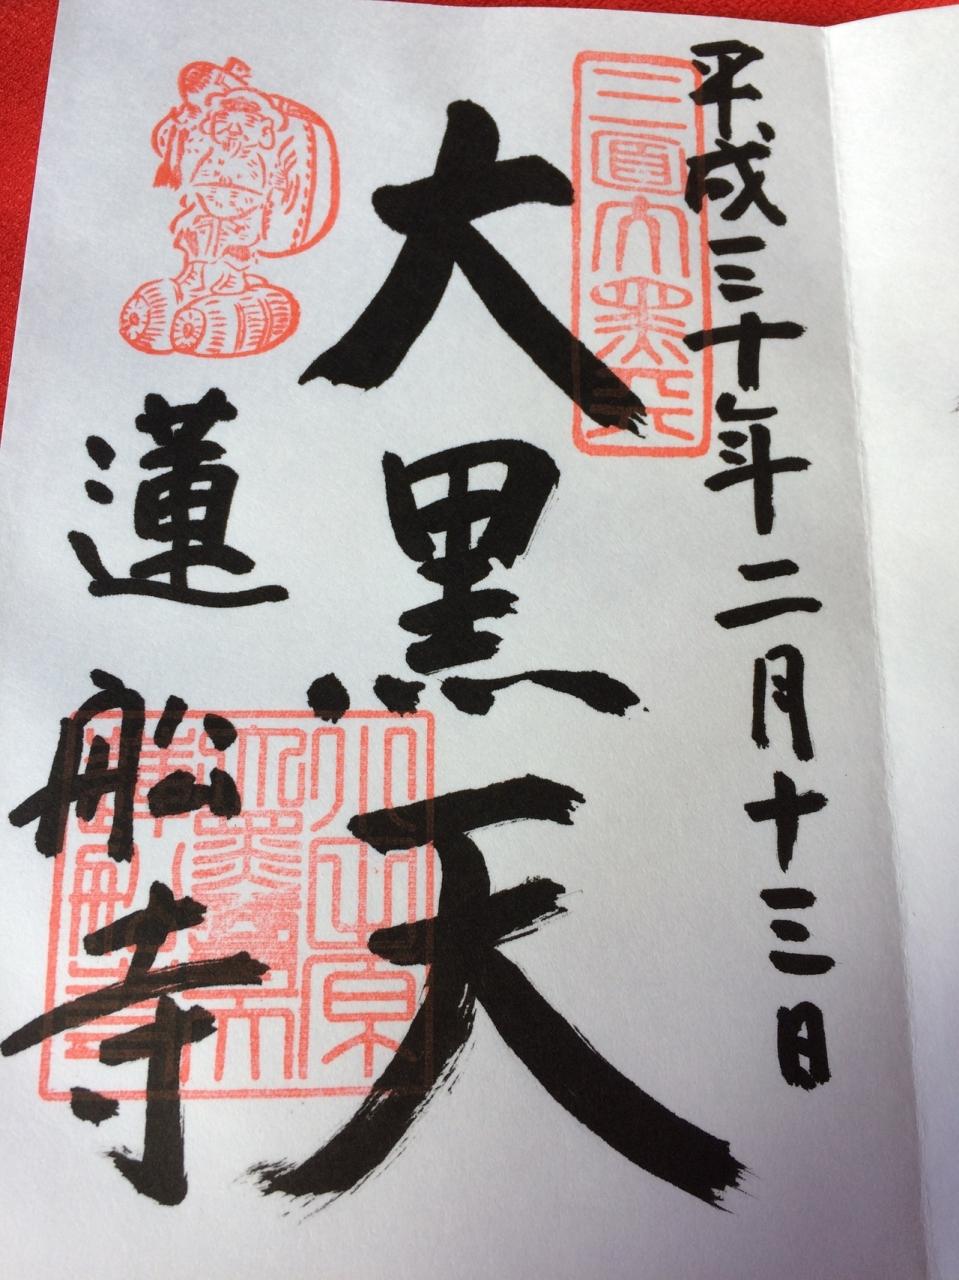 平成三十年二月十三日
三面大黒天
大黒天
蓮船寺